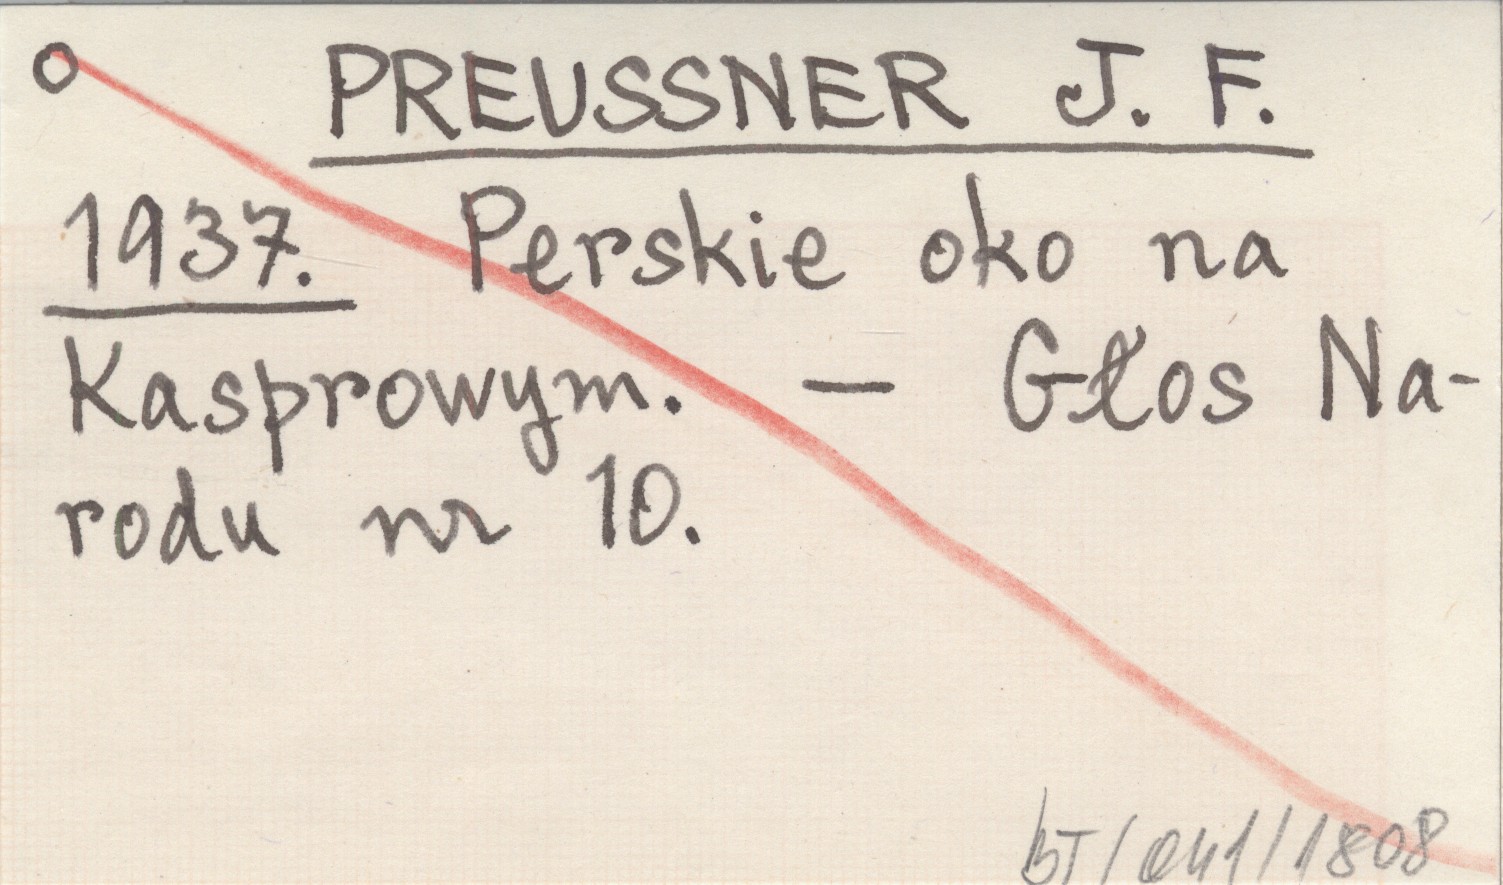 O PREUSSNER J. F.
1937. Perskie oko na
Kasprowym. — Głos Na-
rodu nr 10.
bT/041/1808